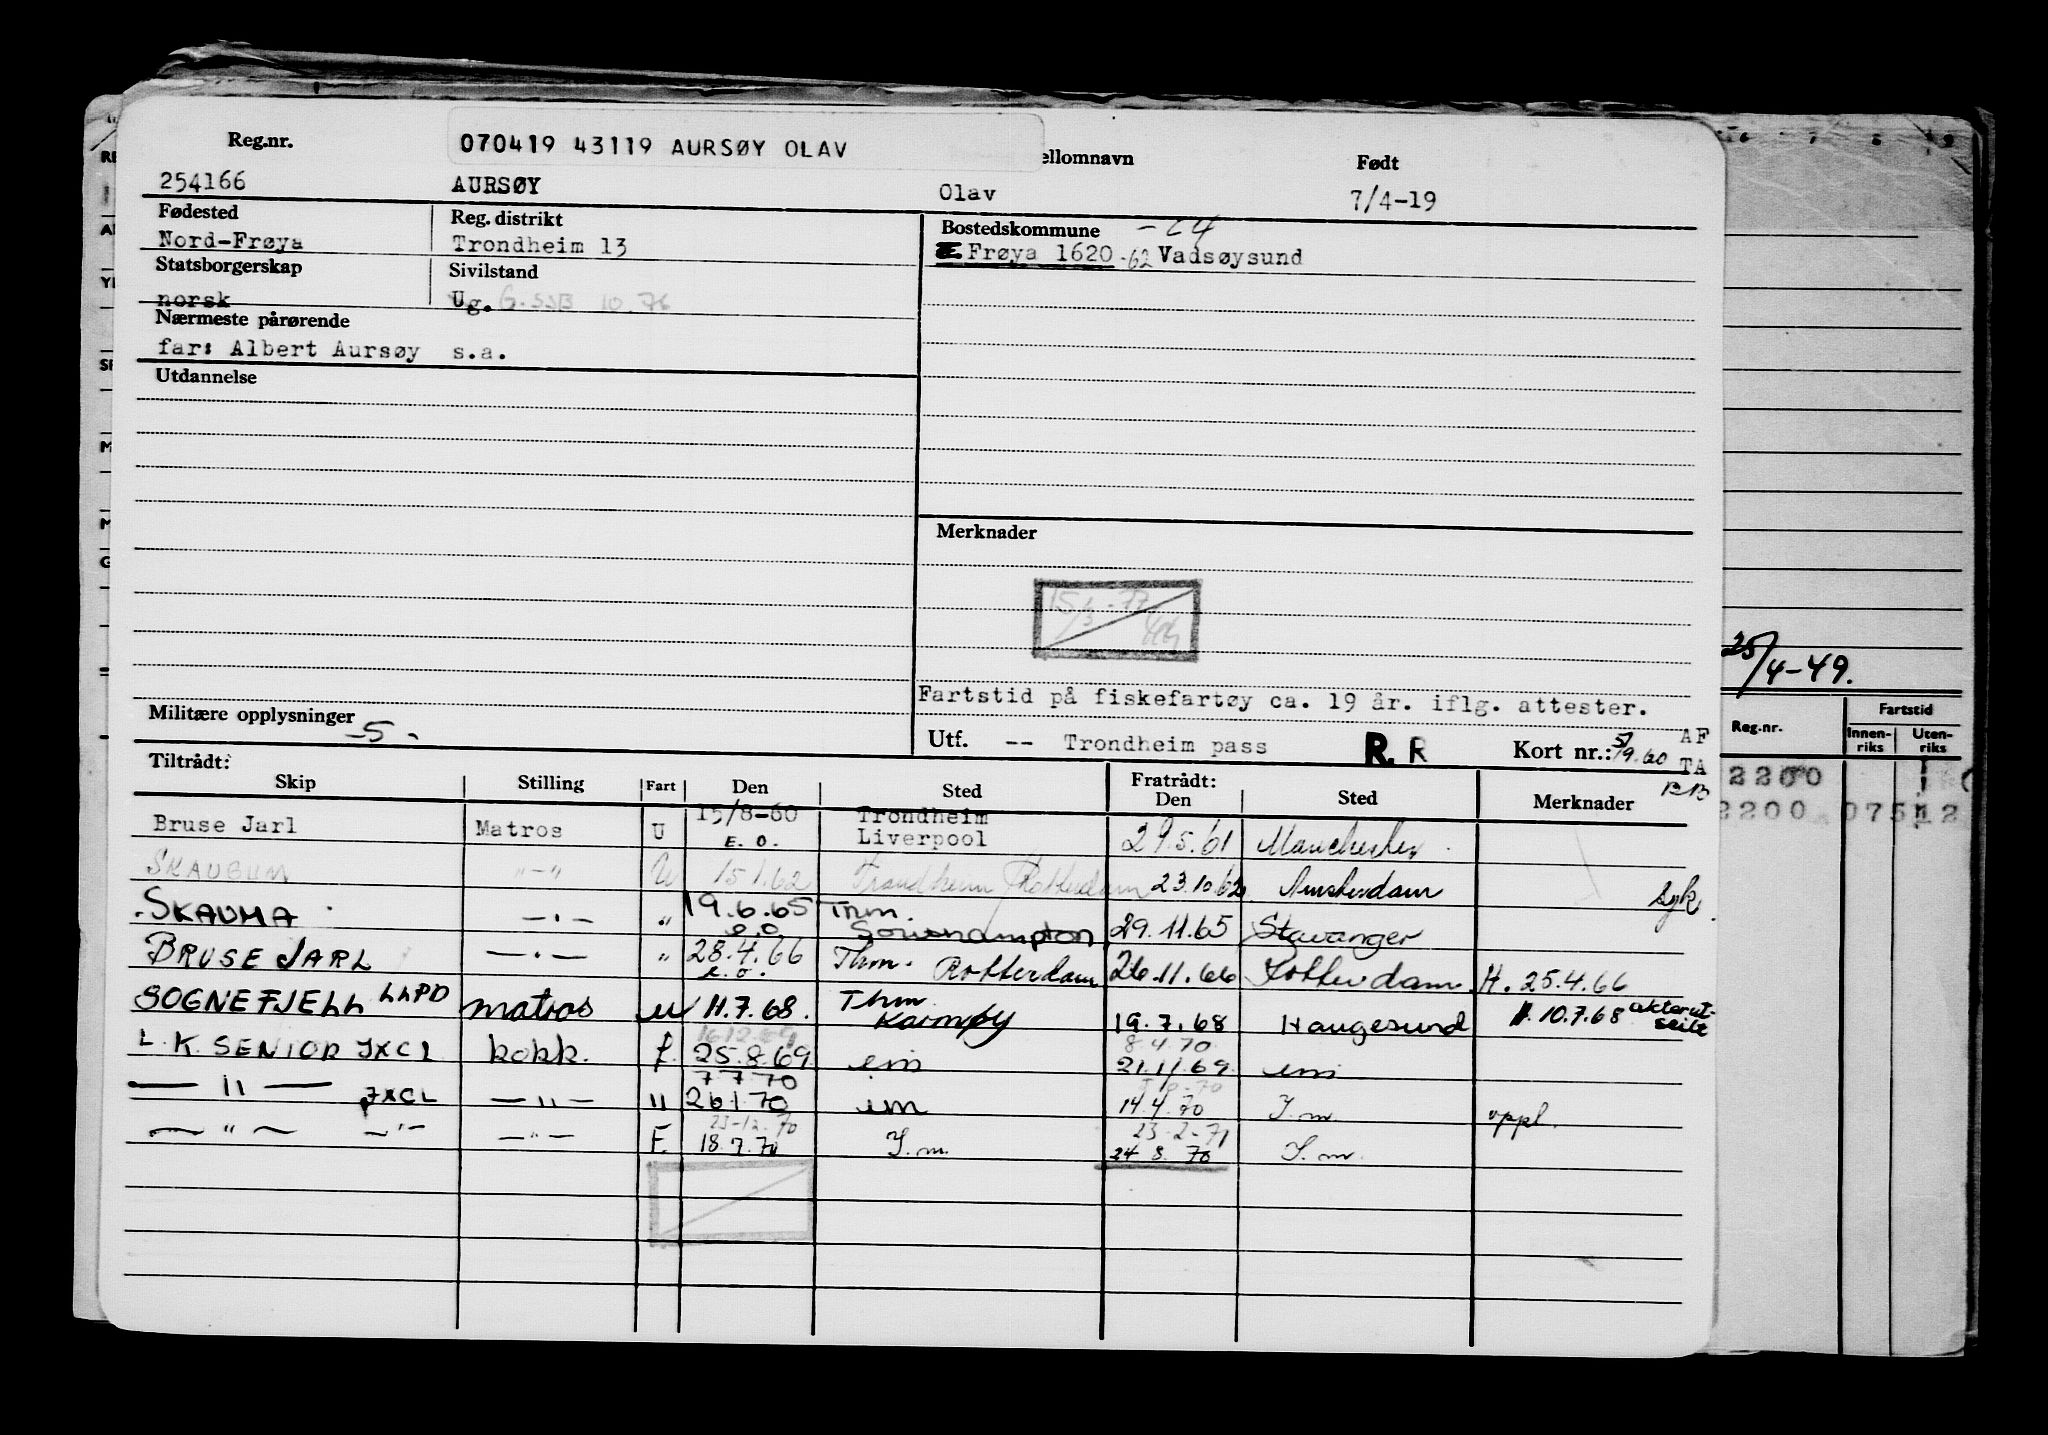 070419 43119 AURSØY OLAV
Reg.nr. ellomnavn Født
254166 AURSØY Olav 7/4-19
Fødested Reg. distrikt Bostedskommune -24
Nord-Frøya Trondheim 13 Frøya 1620 -62 Vadsøysund
Statsborgerskap Sivilstand
norsk Ug. G. SSB 10.76
Nærmeste pårørende
far: Albert Aursøy s.a.
Utdannelse
Merknader
15/3-77
Fartstid på fiskefartøy ca. 19 år. iflg. attester.
Militære opplysninger -5-
Utf. -- Trondheim pass R. R Kort nr.: 5/9.60 AF
TA
Tiltrådt: Fratrådt:
Skip Stilling Fart Den Sted Den Sted Merknader
Bruse Jarl Matros U 15/8-60 Trondheim 29.5.61 Manchester
E.O. Liverpool
SKAUBUM "-" U 15.1.62 Trondheim Rotterdam 23.10.62 Amsterdam syk
SKAUMA -"- " 19.6.65 Trm. 29.11.65 Stavanger
e.o Southampton
BRUSE JARL -"- " 28.4.66 Thm. Rotterdam 26.11.66 Rotterdam H. 25.4.66
e.o.
SOGNEFJELL LLPD matros u 11.7.68. Thm Karmøy 19.7.68 Haugesund 10.7.68
16.12.69 8.4.70
L.K. SENIOR JXCL kokk. f. 25.8.69 em 21.11.69 em
7.7.70
— " — JXCL — " — " 26.1.70 em 14.4.70 I.m. oppl.
23-12.70 23-2-71
— " — — " — — " — F. 18.7.70 I.m. 24.8.70 I.m.
25/4-49.
Reg.nr. Fartstid
Innenriks Utenriks
2200
2200 075